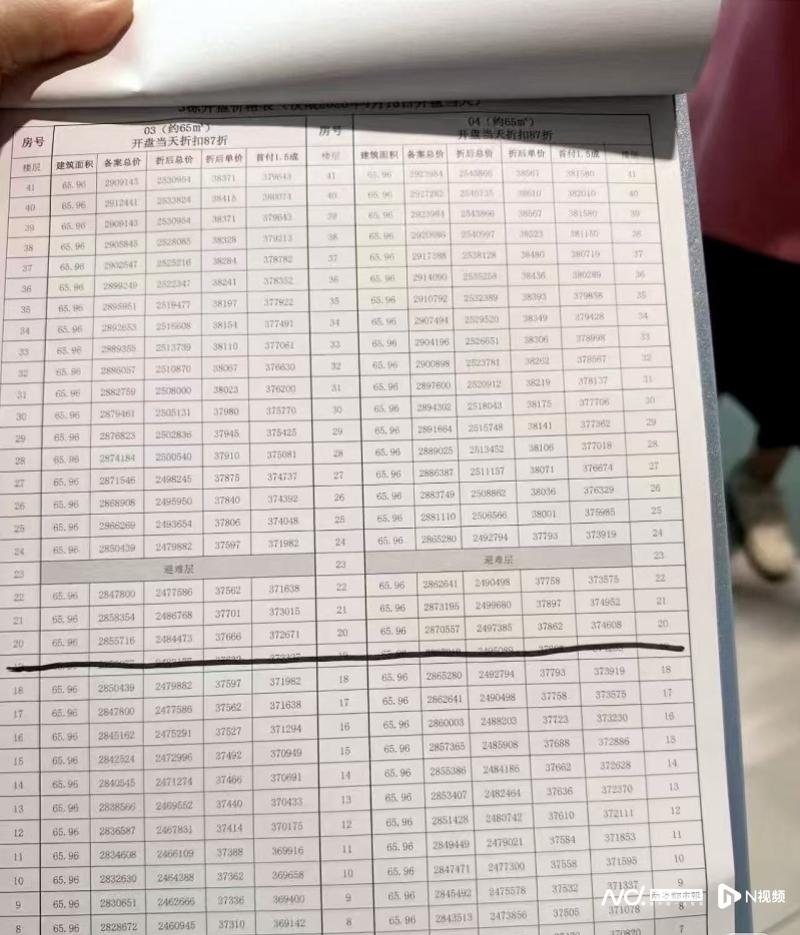 3栋开盘价格表
房号 03（约65㎡） 房号 04（约65㎡）
开盘当天折扣87折 开盘当天折扣87折
楼层 建筑面积 备案总价 折后总价 折后单价 首付1.5成 楼层 建筑面积 备案总价 折后总价 折后单价 首付1.5成 楼层
41 65.96 2909143 2530954 38371 379643 41 65.96 2923984 2543866 38567 381580 41
40 65.96 2912441 2533824 38415 380074 40 65.96 2927282 2546735 38610 382010 40
39 65.96 2909143 2530954 38371 379643 39 65.96 2923984 2543866 38567 381580 39
38 65.96 2905845 2528085 38328 379213 38 65.96 2920686 2540997 38523 381150 38
37 65.96 2902547 2525216 38284 378782 37 65.96 2917388 2538128 38480 380719 37
36 65.96 2899249 2522347 38241 378352 36 65.96 2914090 2535258 38436 380289 36
35 65.96 2895951 2519477 38197 377922 35 65.96 2910792 2532389 38393 379858 35
34 65.96 2892653 2516608 38154 377491 34 65.96 2907494 2529520 38349 379428 34
33 65.96 2889355 2513739 38110 377061 33 65.96 2904196 2526651 38306 378998 33
32 65.96 2886057 2510870 38067 376630 32 65.96 2900898 2523781 38262 378567 32
31 65.96 2882759 2508000 38023 376200 31 65.96 2897600 2520912 38219 378137 31
30 65.96 2879461 2505131 37980 375770 30 65.96 2894302 2518043 38175 377706 30
29 65.96 2876823 2502836 37945 375425 29 65.96 2891664 2515748 38141 377362 29
28 65.96 2874184 2500540 37910 375081 28 65.96 2889025 2513452 38106 377018 28
27 65.96 2871546 2498245 37875 374737 27 65.96 2886387 2511157 38071 376674 27
26 65.96 2868908 2495950 37840 374392 26 65.96 2883749 2508862 38036 376329 26
25 65.96 2866269 2493654 37806 374048 25 65.96 2881110 2506566 38001 375985 25
24 65.96 2850439 2479882 37597 371982 24 65.96 2865280 2492794 37793 373919 24
23 避难层 23 避难层 23
22 65.96 2847800 2477586 37562 371638 22 65.96 2862641 2490498 37758 373575 22
21 65.96 2858354 2486768 37701 373015 21 65.96 2873195 2499680 37897 374952 21
20 65.96 2855716 2484473 37666 372671 20 65.96 2870557 2497385 37862 374608 20
18 65.96 2850439 2479882 37597 371982 18 65.96 2865280 2492794 37793 373919 18
17 65.96 2847800 2477586 37562 371638 17 65.96 2862641 2490498 37758 373575 17
16 65.96 2845162 2475291 37527 371294 16 65.96 2860003 2488203 37723 373230 16
15 65.96 2842524 2472996 37492 370949 15 65.96 2857365 2485908 37688 372886 15
14 65.96 2840545 2471274 37466 370691 14 65.96 2855386 2484186 37662 372628 14
13 65.96 2838566 2469552 37440 370433 13 65.96 2853407 2482464 37636 372370 13
12 65.96 2836587 2467831 37414 370175 12 65.96 2851428 2480742 37610 372111 12
11 65.96 2834608 2466109 37388 369916 11 65.96 2849449 2479021 37584 371853 11
10 65.96 2832630 2464388 37362 369658 10 65.96 2847471 2477300 37558 371595 10
9 65.96 2830651 2462666 37336 369400 9 65.96 2845492 2475578 37532 371337 9
8 65.96 2828672 2460945 37310 369142 8 65.96 2843513 2473856 37505 371078 8
7
N视频